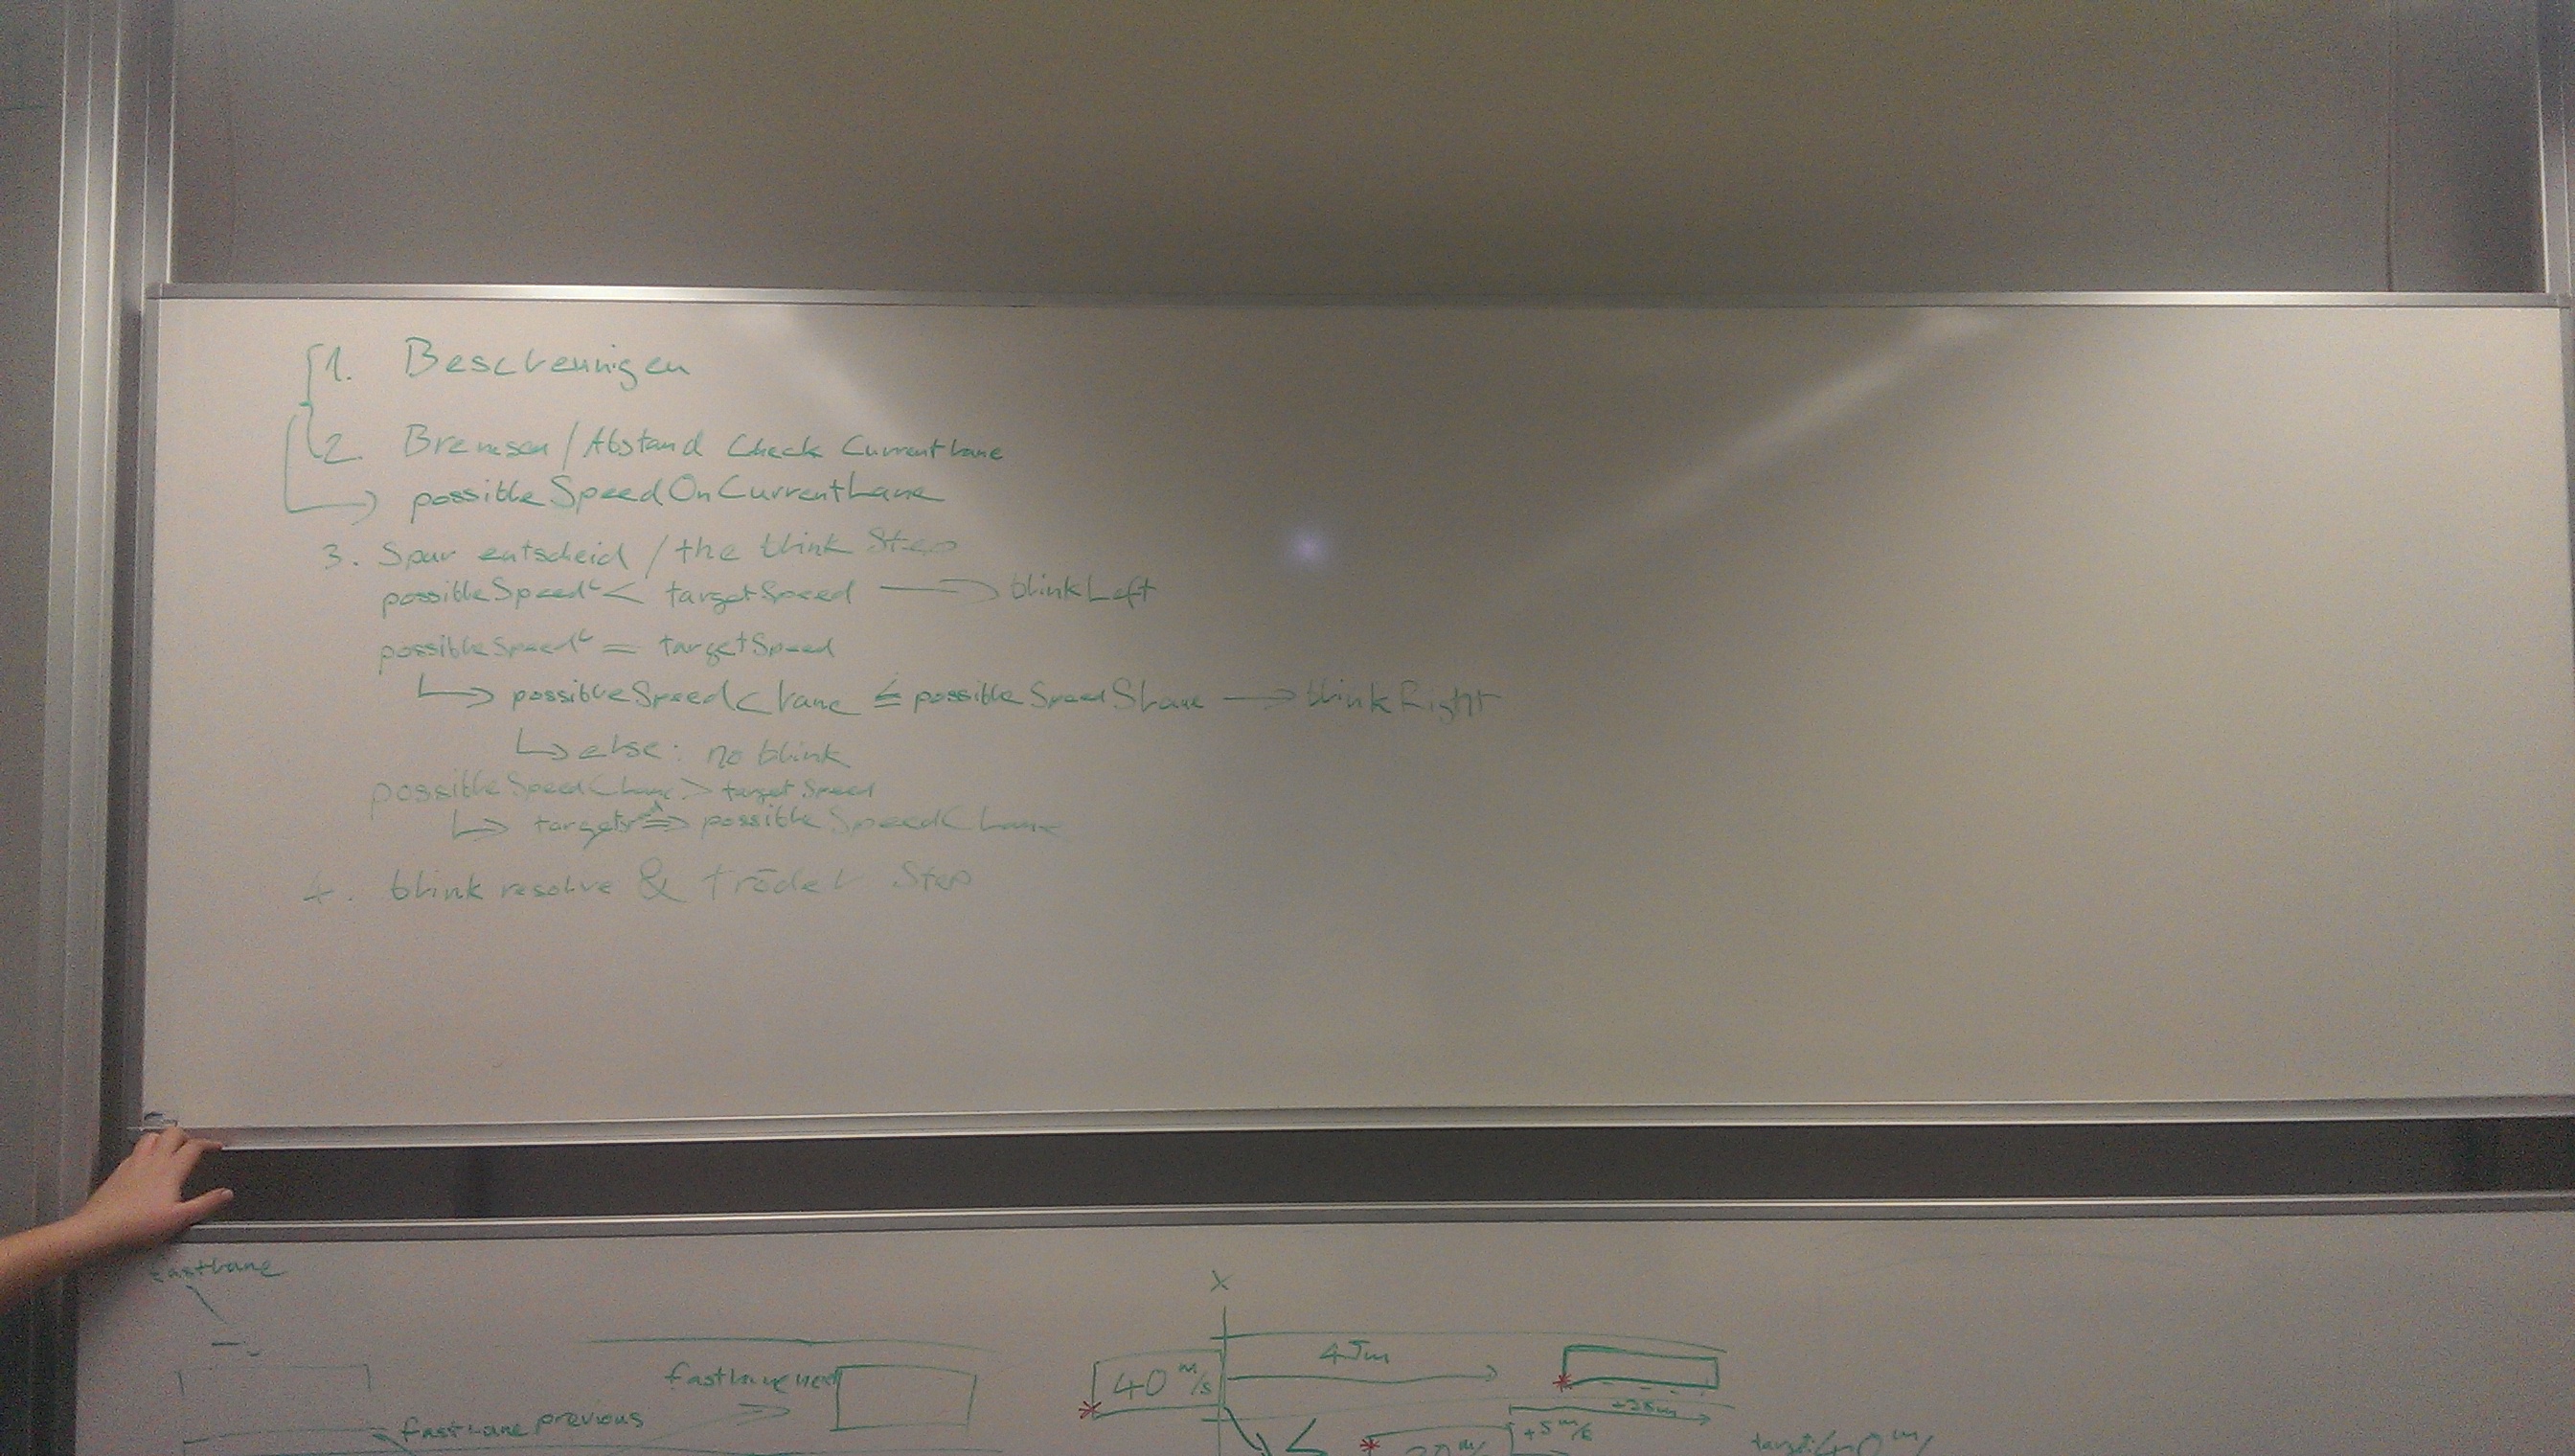 1. Beschleunigen
2. Bremsen / Abstand Check CurrentLane
→ possibleSpeedOnCurrentLane
3. Spur entscheid / the think Step
possibleSpeedC < targetSpeed → blinkLeft
possibleSpeedC = targetSpeed
↳ possibleSpeedCLane ≤ possibleSpeedSLane → blinkRight
↳ else: no blink
possibleSpeedCLane > targetSpeed
↳ possibleSpeedCLane
4. blink resolve & trödel Step
fastLane
X
fastLane next
40 m/s
45m
fastLane previous
+5 m/s
target: 40 m/